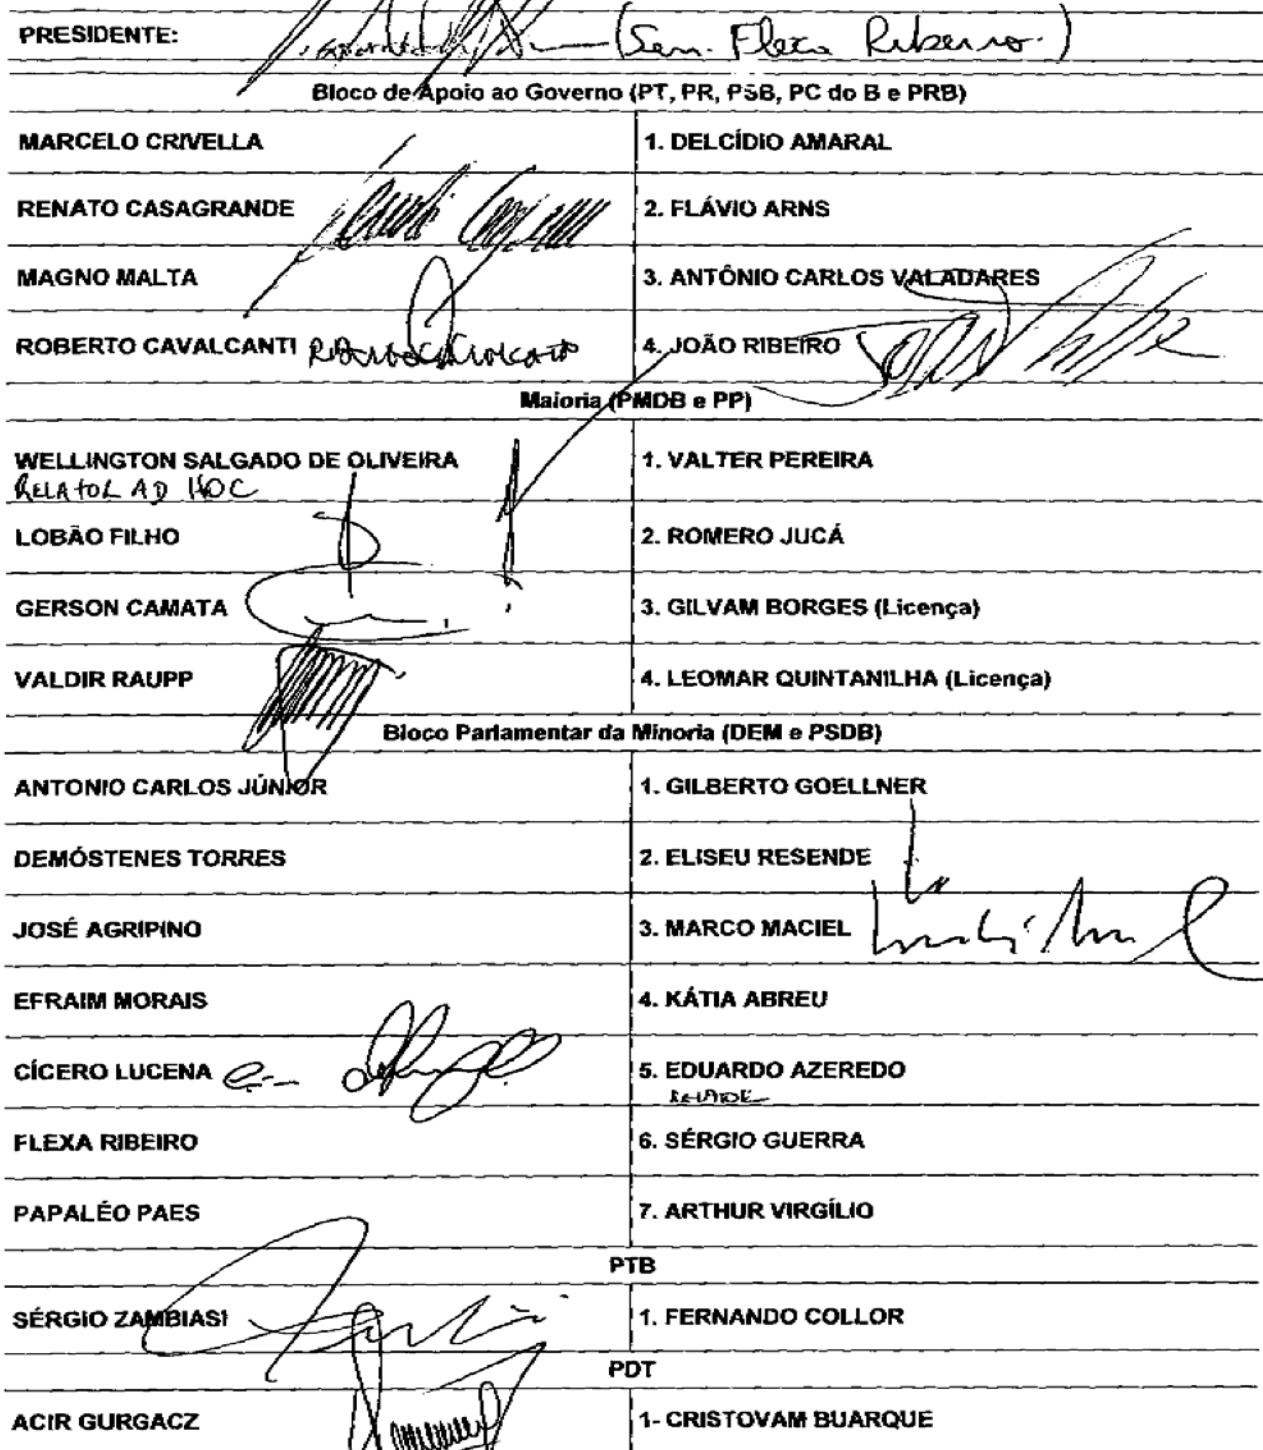 PRESIDENTE: (Sen. Flexa Ribeiro.)
Bloco de Apoio ao Governo (PT, PR, PSB, PC do B e PRB)
MARCELO CRIVELLA 1. DELCÍDIO AMARAL
RENATO CASAGRANDE 2. FLÁVIO ARNS
MAGNO MALTA 3. ANTÔNIO CARLOS VALADARES
ROBERTO CAVALCANTI 4. JOÃO RIBEIRO
Maioria (PMDB e PP)
WELLINGTON SALGADO DE OLIVEIRA 1. VALTER PEREIRA
RELATOR AD HOC
LOBÃO FILHO 2. ROMERO JUCÁ
GERSON CAMATA 3. GILVAM BORGES (Licença)
VALDIR RAUPP 4. LEOMAR QUINTANILHA (Licença)
Bloco Parlamentar da Minoria (DEM e PSDB)
ANTONIO CARLOS JÚNIOR 1. GILBERTO GOELLNER
DEMÓSTENES TORRES 2. ELISEU RESENDE
JOSÉ AGRIPINO 3. MARCO MACIEL
EFRAIM MORAIS 4. KÁTIA ABREU
CÍCERO LUCENA 5. EDUARDO AZEREDO
FLEXA RIBEIRO 6. SÉRGIO GUERRA
PAPALÉO PAES 7. ARTHUR VIRGÍLIO
PTB
SÉRGIO ZAMBIASI 1. FERNANDO COLLOR
PDT
ACIR GURGACZ 1- CRISTOVAM BUARQUE